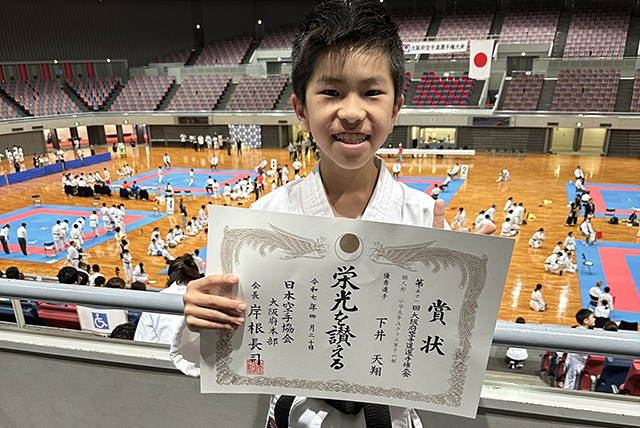 大阪府空手道選手権大
賞状
大阪府空手道選手権大会
個人形
優秀選手
下井 天翔
栄光を讃える
令和七年四月二十日
日本空手協会
大阪府本部
会長 岸根長司